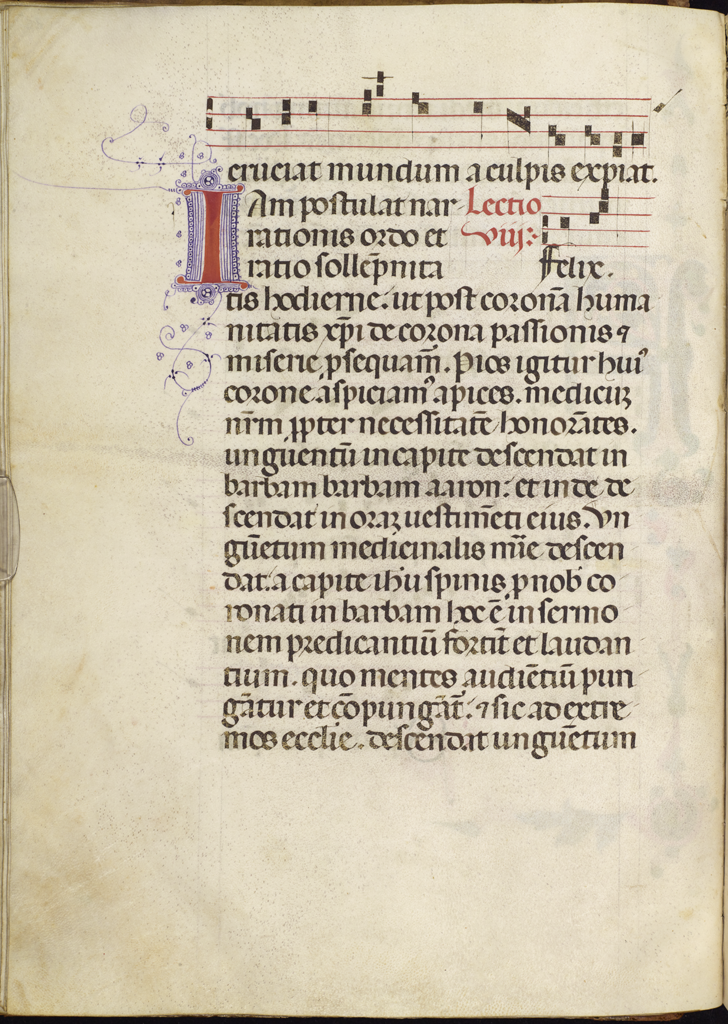 cruciat mundum a culpis expiat.
IAm postulat nar Lectio
rationis ordo et viij:
ratio sollēpnita ffelix.
tis hodierne. ut post coronā huma
nitatis xp̄i de corona passionis ⁊
miserie ꝓsequam̄. Pios igitur huiꝰ
corone aspiciamꝰ apices. mediciꝝ
nr̄m ꝓpter necessitatē honorātes.
unguentū in capite descendat in
barbam barbam aaron: et inde de
scendat in oraꝝ uestimēti eius. Vn
guētum medicinalis mīe descen
dat. a capite ihū spinis ꝓ nob̄ co
ronati in barbam hoc ē in sermo
nem predicantiū fortit̄ et laudan
tium. quo mentes audiētiū pun
gātur et cōpungāt̄. ⁊ sic ad extre
mos ecclīe. descendat unguētum